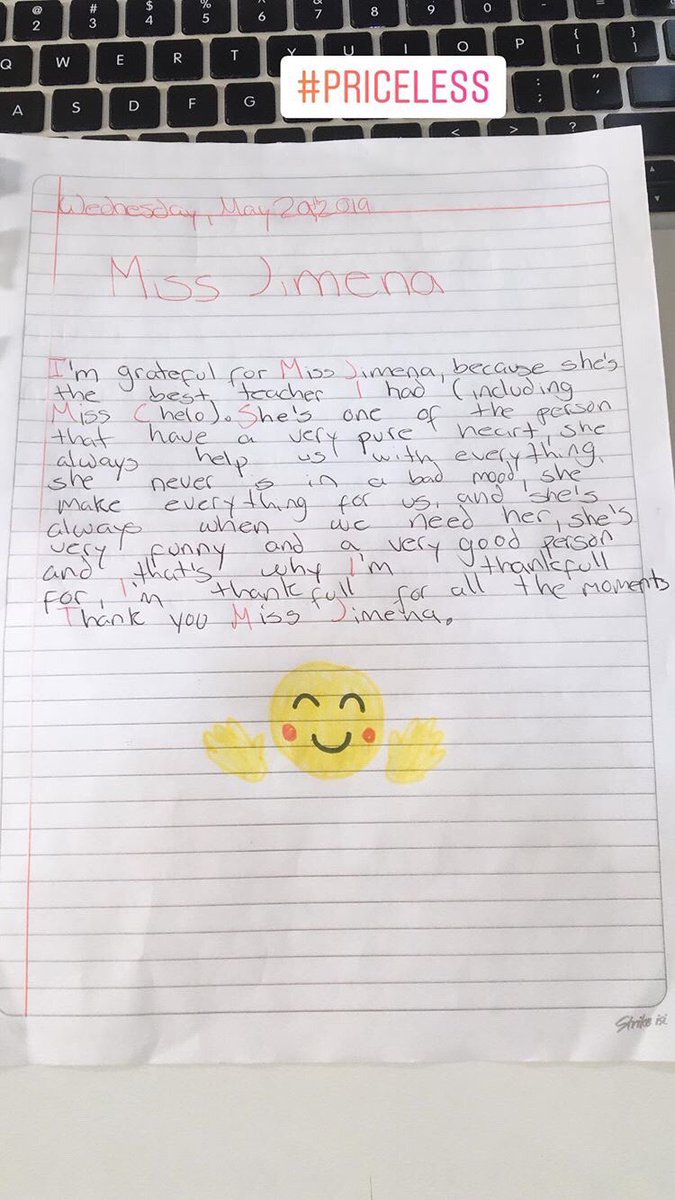 @ # $ % ^ & 8 9 0 { }
2 3 4 5 6 7 [ ]
Q W E R T Y U I O P
#PRICELESS
A S D F G : ; " '
< > ?
Wednesday, May 29, 2019
Miss Jimena
I'm grateful for Miss Jimena, because she's
the best teacher I had (including
Miss Chelo). She's one of the person
that have a very pure heart, she
always help us with everything,
she never is in a bad mood, she
make everything for us, and she's
always when we need her, she's
very funny and a very good person
and that's why I'm thankfull
for, I'm thankfull for all the moments
Thank you Miss Jimena.